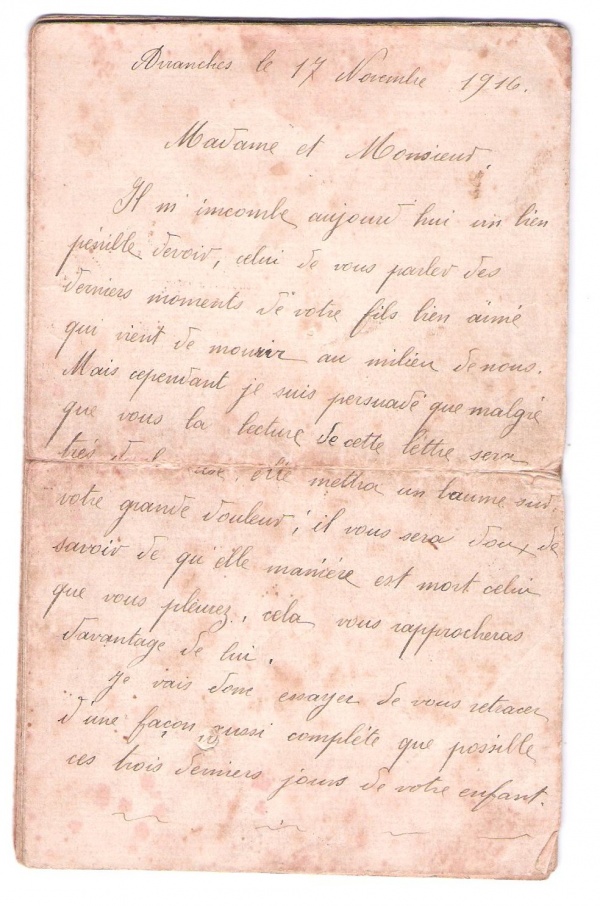 Avranches le 17 Novembre 1916.
Madame et Monsieur,
Il m'incombe aujourd'hui un bien
pénible devoir, celui de vous parler des
derniers moments de votre fils bien aimé
qui vient de mourir au milieu de nous.
Mais cependant je suis persuadé que malgré
que vous la lecture de cette lettre sera
très elle mettra un baume sur
votre grande douleur; il vous sera doux de
savoir de qu'elle manière est mort celui
que vous pleurez, cela vous rapprocheras
davantage de lui.
Je vais donc essayer de vous retracer
d'une façon aussi complète que possible
ces trois derniers jours de votre enfant.